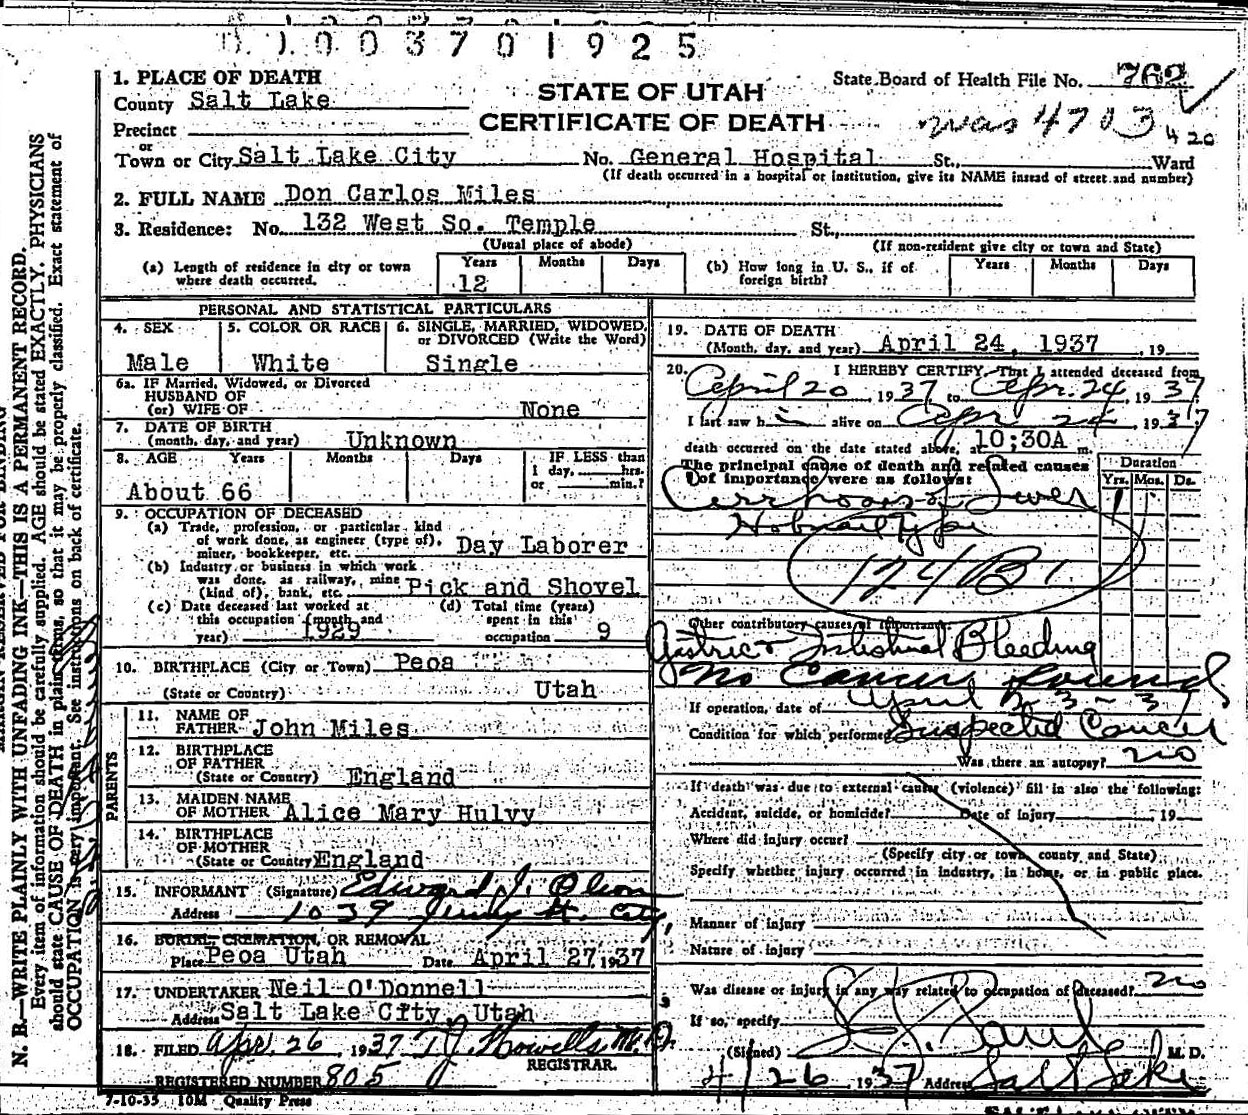 003701925
1. PLACE OF DEATH
County Salt Lake
Precinct
or
Town or City Salt Lake City No. General Hospital St., Ward
(If death occurred in a hospital or institution, give its NAME instead of street and number)
STATE OF UTAH
CERTIFICATE OF DEATH
State Board of Health File No. 762
was 4703
420
2. FULL NAME Don Carlos Miles
3. Residence: No. 132 West So. Temple St.,
(Usual place of abode) (If non-resident give city or town and State)
(a) Length of residence in city or town where death occurred. Years 12 Months Days
(b) How long in U. S., if of foreign birth? Years Months Days
PERSONAL AND STATISTICAL PARTICULARS
4. SEX Male
5. COLOR OR RACE White
6. SINGLE, MARRIED, WIDOWED, or DIVORCED (Write the Word) Single
6a. IF Married, Widowed, or Divorced
HUSBAND OF
(or) WIFE OF None
7. DATE OF BIRTH
(month, day, and year) Unknown
8. AGE Years Months Days IF LESS than
1 day, hrs.
or min.?
About 66
9. OCCUPATION OF DECEASED
(a) Trade, profession, or particular kind
of work done, as engineer (type of),
miner, bookkeeper, etc. Day Laborer
(b) Industry or business in which work
was done, as railway, mine
(kind of), bank, etc. Pick and Shovel
(c) Date deceased last worked at
this occupation (month and
year) 1929
(d) Total time (years)
spent in this
occupation 9
10. BIRTHPLACE (City or Town) Peoa
(State or Country) Utah
PARENTS
11. NAME OF
FATHER John Miles
12. BIRTHPLACE
OF FATHER
(State or Country) England
13. MAIDEN NAME
OF MOTHER Alice Mary Hulvy
14. BIRTHPLACE
OF MOTHER
(State or Country) England
15. INFORMANT (Signature) Edward J. Olson
Address 1039 St. City,
16. BURIAL, CREMATION, OR REMOVAL
Place Peoa Utah Date April 27, 1937
17. UNDERTAKER Neil O'Donnell
Address Salt Lake City, Utah
18. FILED Apr. 26 1937 T.J. Howells M.D.
REGISTRAR.
REGISTERED NUMBER 805
7-10-35 10M Quality Press
19. DATE OF DEATH
(Month, day, and year) April 24, 1937, 19
20. I HEREBY CERTIFY, That I attended deceased from
April 20, 1937 to Apr. 24, 1937
I last saw h i alive on Apr 24, 1937
death occurred on the date stated above, at 10:30A m.
The principal cause of death and related causes
of importance were as follows:
Duration
Yrs. Mos. Ds.
Cirrhosis of Liver 1
Hobnail Type
124B1
Other contributory causes of importance:
Gastric & Intestinal Bleeding
No Cancer Found
If operation, date of April 23-37
Condition for which performed Suspected Cancer
Was there an autopsy? no
If death was due to external cause (violence) fill in also the following:
Accident, suicide, or homicide? Date of injury 19
Where did injury occur?
(Specify city or town, county and State)
Specify whether injury occurred in industry, in home, or in public place.
Manner of injury
Nature of injury
Was disease or injury in any way related to occupation of deceased? no
If so, specify
(Signed) M. D.
4/26, 1937 Address Salt Lake
N. B.—WRITE PLAINLY WITH UNFADING INK—THIS IS A PERMANENT RECORD.
Every item of information should be carefully supplied. AGE should be stated EXACTLY. PHYSICIANS
should state CAUSE OF DEATH in plain terms, so that it may be properly classified. Exact statement of
OCCUPATION is very important. See instructions on back of certificate.